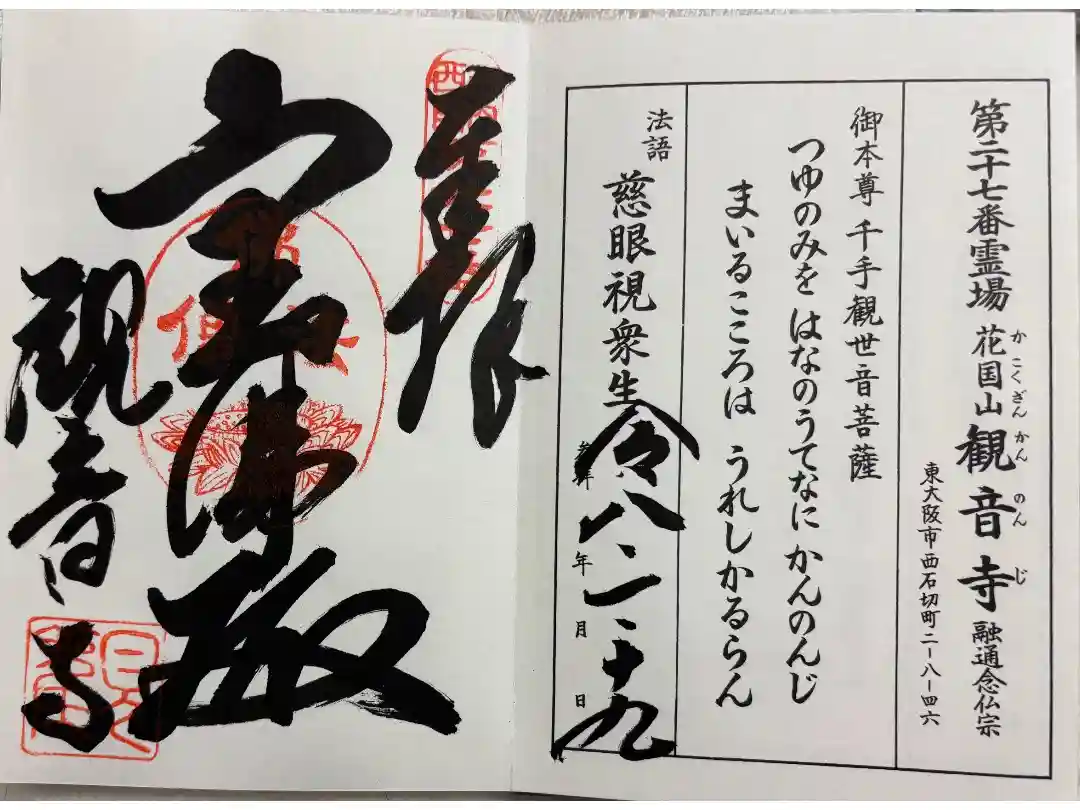 第二十七番霊場 花国山 観音寺 融通念仏宗
かこくざん かんのんじ
東大阪市西石切町二ー八ー四六
御本尊 千手観世音菩薩
つゆのみを はなのうてなに かんのんじ
まいるこころは うれしかるらん
法語 慈眼視衆生
年 月 日
令八 二 十九
奉拝
宝佛殿
観音寺